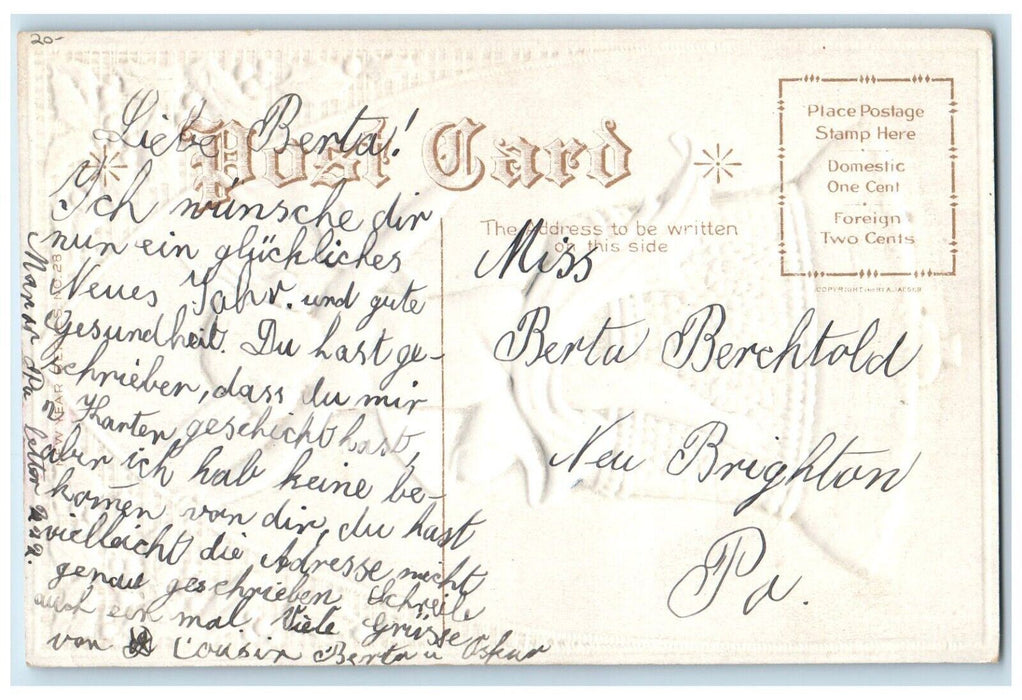 20-
Post Card
Place Postage
Stamp Here
Domestic
One Cent
Foreign
Two Cents
The Address to be written
on this side
Liebe Berta!
Ich wünsche dir
nun ein glückliches
Neues Jahr. und gute
Gesundheit. Du hast ge-
schrieben, dass du mir
2 Karten geschickt hast,
aber ich hab keine be-
kom̄en von dir, du hast
vielleicht die Adresse nicht
genau geschrieben Schreibe
auch ein mal. Viele Grüsse
von Cousin Berta u Oskar
Pa
Miss
Berta Berchtold
New Brighton
Pa.
NEW YEAR NO. 28